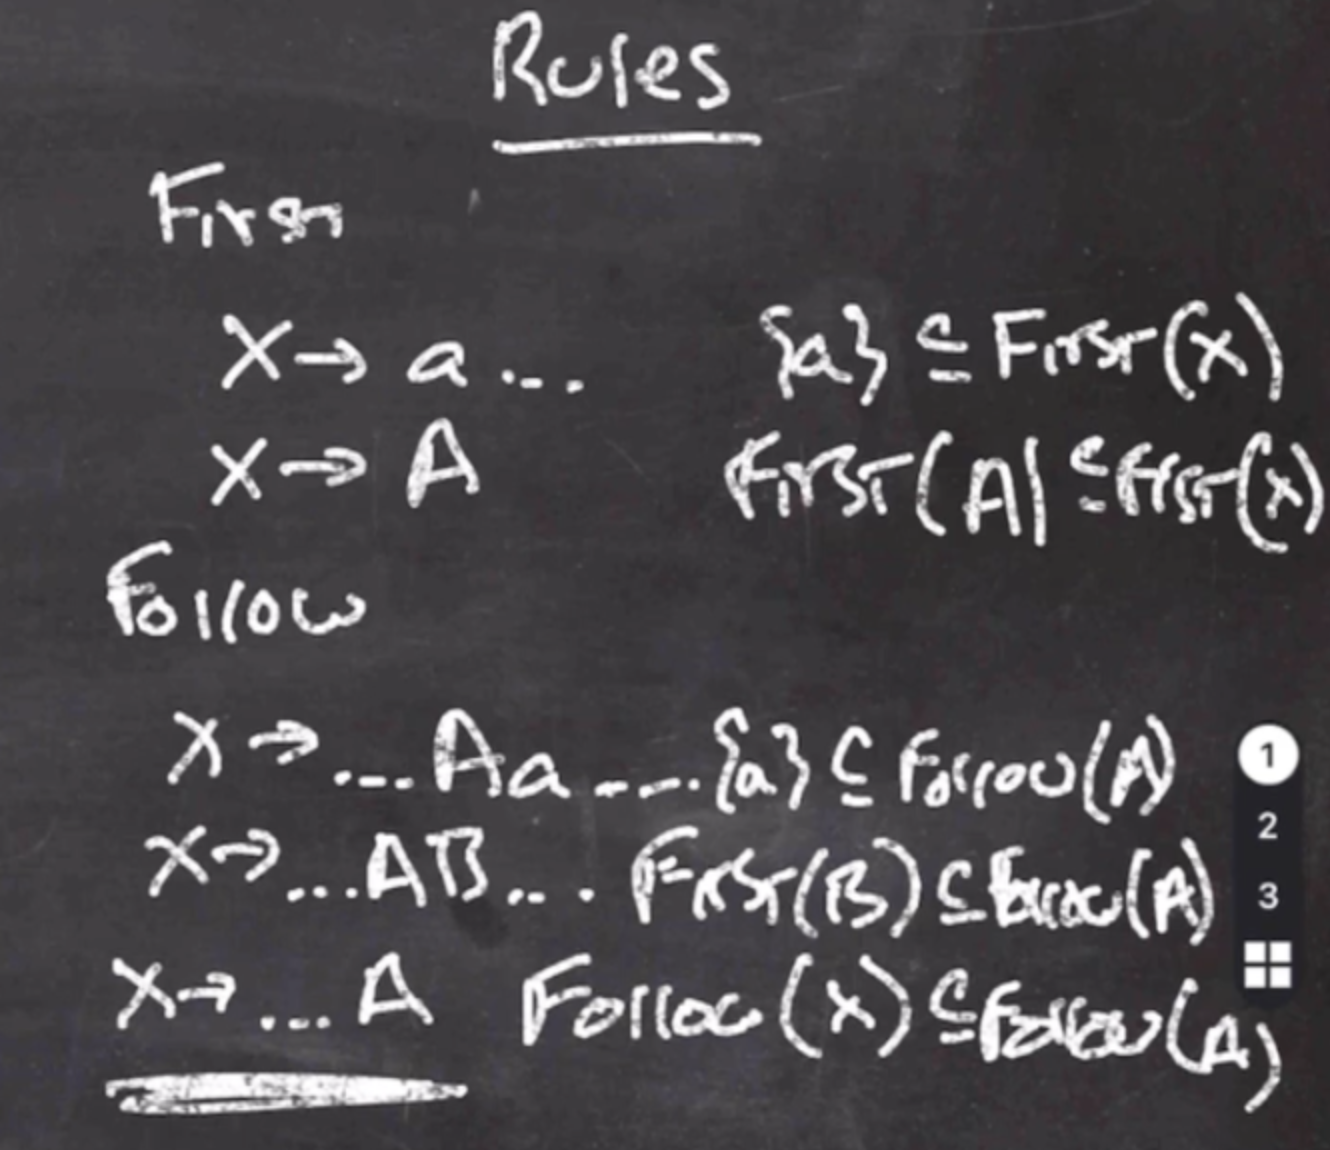 Rules
First
X → a ... {a} ⊆ First(X)
X → A First(A) ⊆ First(X)
Follow
X → ... Aa .... {a} ⊆ Follow(A)
X → ... AB ... First(B) ⊆ Follow(A)
X → ... A Follow(X) ⊆ Follow(A)
1
2
3